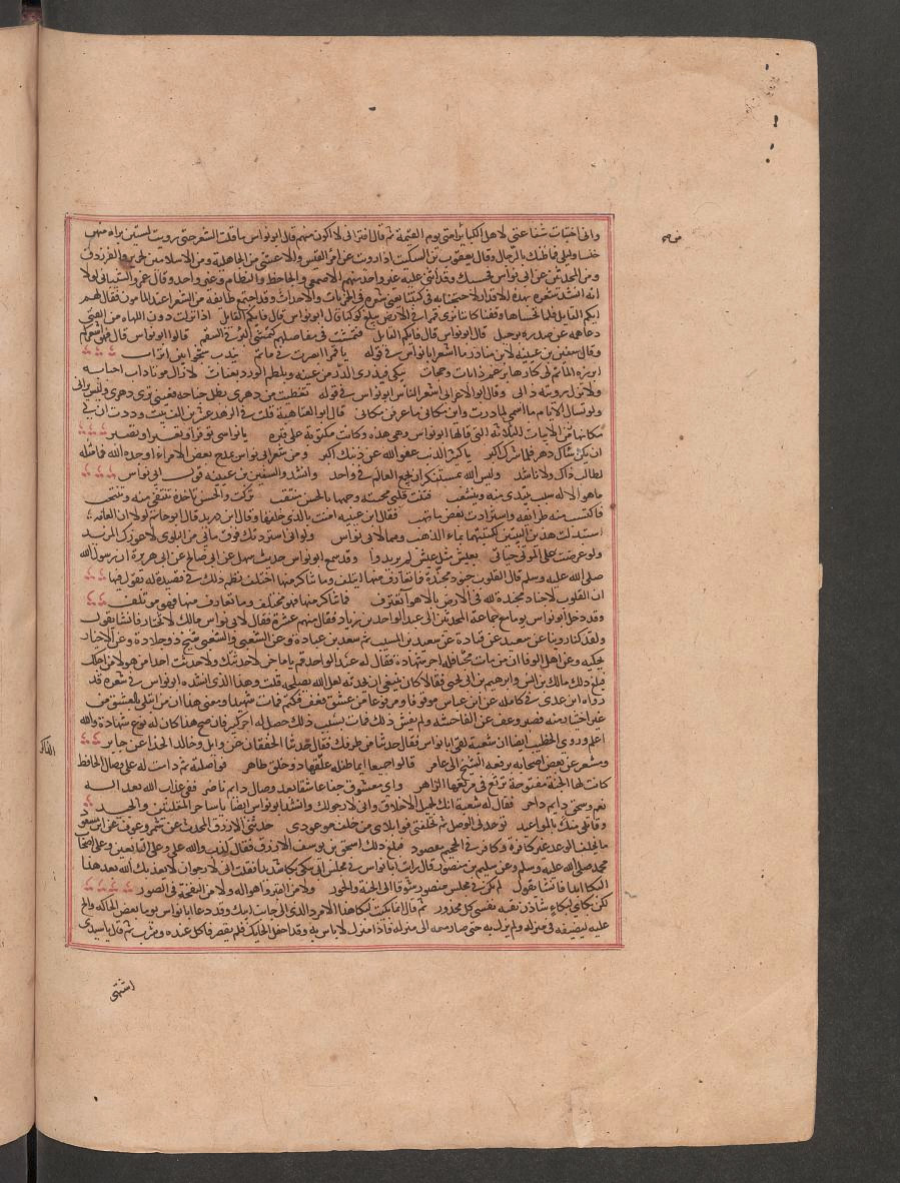 وانى اختبات شفاعتى لاهل الكبائر من امتى يوم القيمة ثم قال افترانى لا اكون منهم قال ابو نواس ما قلت الشعر حتى رويت لستين امراة منهم
خنسا وليلى فما ظنك بالرجال وقال يعقوب بن السكيت اذا رويت عن امرئ القيس والاعشى من الجاهلية ومن الاسلاميين لجرير والفرزدق
ومن المحدثين عن ابى نواس فحسبك وقد اثنى عليه غير واحد منهم الاصمعى والجاحظ والنظام وغير واحد وقال عمرو الشيبانى لولا
انه افسد شعره بهذه الاقذار لاحتججنا به فى كتبنا يعنى شعره فى الخمريات والاحداث وقد اجتمع طائفة من الشعرا عند المامون فقال لهم
ايكم القايل فلما تحساها وقفنا كاننا نرى قمرا فى الارض يبلع كوكبا قالوا ابو نواس قال فايكم القايل اذا نزلت دون اللهاة من الفتى
دعا همه عن صدره برحيل قال ابو نواس قال فايكم القايل فتمشت فى مفاصلهم كتمشى البرء فى السقم قالوا ابو نواس قال فهو اشعركم
وقال سفين بن عيينة لابن مناذر ما اشعر ابا نواس فى قوله يا قمرا ابصرت فى ماتم يندب شجوا بين اتراب
ابرزه الماتم لى كارها برغم ذى بابات وحجاب يبكى فيذرى الدر من عينه ويلطم الورد بعناب لا زال موتا داب احبابه
ولا تزل رويته دابى وقال ابن الاعرابى اشعر الناس ابو نواس فى قوله تغطيت من دهرى بظل جناحه فعينى ترى دهرى وليس يرانى
ولو تسال الايام ما اسمى لما درت واين مكانى ما عرفن مكانى قال ابو العتاهية قلت فى الزهد عشرين الف بيت وددت ان لى
مكانها من الابيات الثلاثة التى قالها ابو نواس وهى هذه وكانت مكتوبة على قبره يا نواسى توقر او تغير او تصبر
ان يكن ساك دهر فلما سرك اكبر يا كبير الذنب عفو الله عن ذنبك اكبر ومن شعر ابى نواس يمدح بعض الامراء اوجده الله فما مثله
لطالب ذاك ولا ناشد وليس الله بمستنكر ان يجمع العالم فى واحد وانشد والسفين بن عيينة قول ابى نواس
ما هوى الا له سبب يبتدى منه وينشعب فتنت قلبى محجبة وجهها بالحسن منتقب تركت والحسن تاخذه تنتقى منه وتنتخب
فاكتست منه طرائفه واستزادت بعض ما تهب فقال ابن عيينة امنت بالذى خلقها وقال ابن دريد قال ابو حاتم لولا ان العامة
استبذلت هذين البيتين لكتبتهما بماء الذهب وهما لابى نواس ولو انى استزدتك فوق ما بى من البلوى لاعوزك المزيد
ولو عرضت على الموتى حياتى بعيش مثل عيشى لم يريدوا وقد سمع ابو نواس حديث سهيل عن ابى صالح عن ابى هريرة ان رسول الله
صلى الله عليه وسلم قال القلوب جنود مجندة فما تعارف منها ايتلف وما تناكر منها اختلف نظم ذلك فى قصيدة له يقول فيها
ان القلوب لاجناد مجندة لله فى الارض بالاهوا تعترف فما تناكر منها فهو مختلف وما تعارف منها فهو موتلف
وقد دخل ابو نواس يوما مع جماعة المحدثين الى عبد الواحد بن زياد فقال منهم عشرة فقال لابى نواس مالك لا تختار فانشا يقول
ولقد كنا روينا عن سعيد عن قتادة عن سعيد بن المسيب ثم سعد بن عبادة وعن الشعبى والشعبى شيخ ذو جلادة وعن الاخيار
يحكيه وعن اهل الوفا ان من مات محبا فله اجر شهادة فقال له عبد الواحد قم يا ماجن لا حدثتك ولا حدثت احدا من هولا من اجلك
فبلغ ذلك مالك بن انس وابرهيم بن ابى يحيى فقالا كان ينبغى ان يحدثه لعل الله يصلحه قلت وهذا الذى انشده ابو نواس فى شعره قد
رواه ابن عدى فى كامله عن ابن عباس موقوفا ومرفوعا من عشق فعف فكتم فمات مات شهيدا ومعنى هذا ان من ابتلى بالعشق من
غير اختيار منه فصبر وعف عن الفاحشة ولم يفش ذلك فمات بسبب ذلك حصل له اجر كبير فان صح هذا كان له نوع شهادة والله
اعلم وروى الخطيب ايضا ان شعبة لقى ابا نواس فقال حدثنا من طرفك فقال حدثنا الخفاف عن وايل وخالد الحذا عن جابر
ومسعر عن بعض اصحابه يرفعه الشيخ الى عامر قالوا جميعا ايما طفلة علقها ذو خلق طاهر فواصلته ثم دامت له على وصال الحافظ
الذاكر
كانت لها الجنة مفتوحة ترتع فى مرتعها الزاهر واى معشوق جفا عاشقا بعد وصال دايم ناضر ففى عذاب الله بعدا له
نعم وسحق دايم داحر فقال له شعبة انك لجميل الاخلاق وانى لارجو لك وانشد ابو نواس ايضا يا ساحر المقلتين والجيد
وقاتلى منك بالمواعيد توعدنى الوصل ثم تخلفنى فوا بلاى من خلف موعودى حدثنى الازرق المحدث عن شمر وعوف عن ابن مسعود
ما يخلف الوعد غير كافرة وكافر فى الجحيم مصفود فبلغ ذلك اسحق بن يوسف الازرق فقال كذب والله على وعلى التابعين وعلى اصحاب
محمد صلى الله عليه وسلم وعن سليم بن منصور قال رايت ابا نواس فى مجلس ابى يبكى بكا شديدا فقلت انى لارجو ان لا يعذبك الله بعد هذا
البكا ابدا فانشا يقول لم ابك فى مجلس منصور شوقا الى الجنة والحور ولا من القبر واهواله ولا من النفخة فى الصور
لكن بكائى لبكاء شادن تقيه نفسى كل محذور ثم قال انما بكيت لبكا هذا الامرد الذى الى جانب ابيك وقد دعا ابا نواس يوما بعض الحاكة والح
عليه ليضيفه فى منزله ولم يزل به حتى صار معه الى منزله فاذا منزل لا باس به وقد احفل الحايك فلم يقصر فاكل عنده وشرب ثم قال يا سيدى
اشتهى